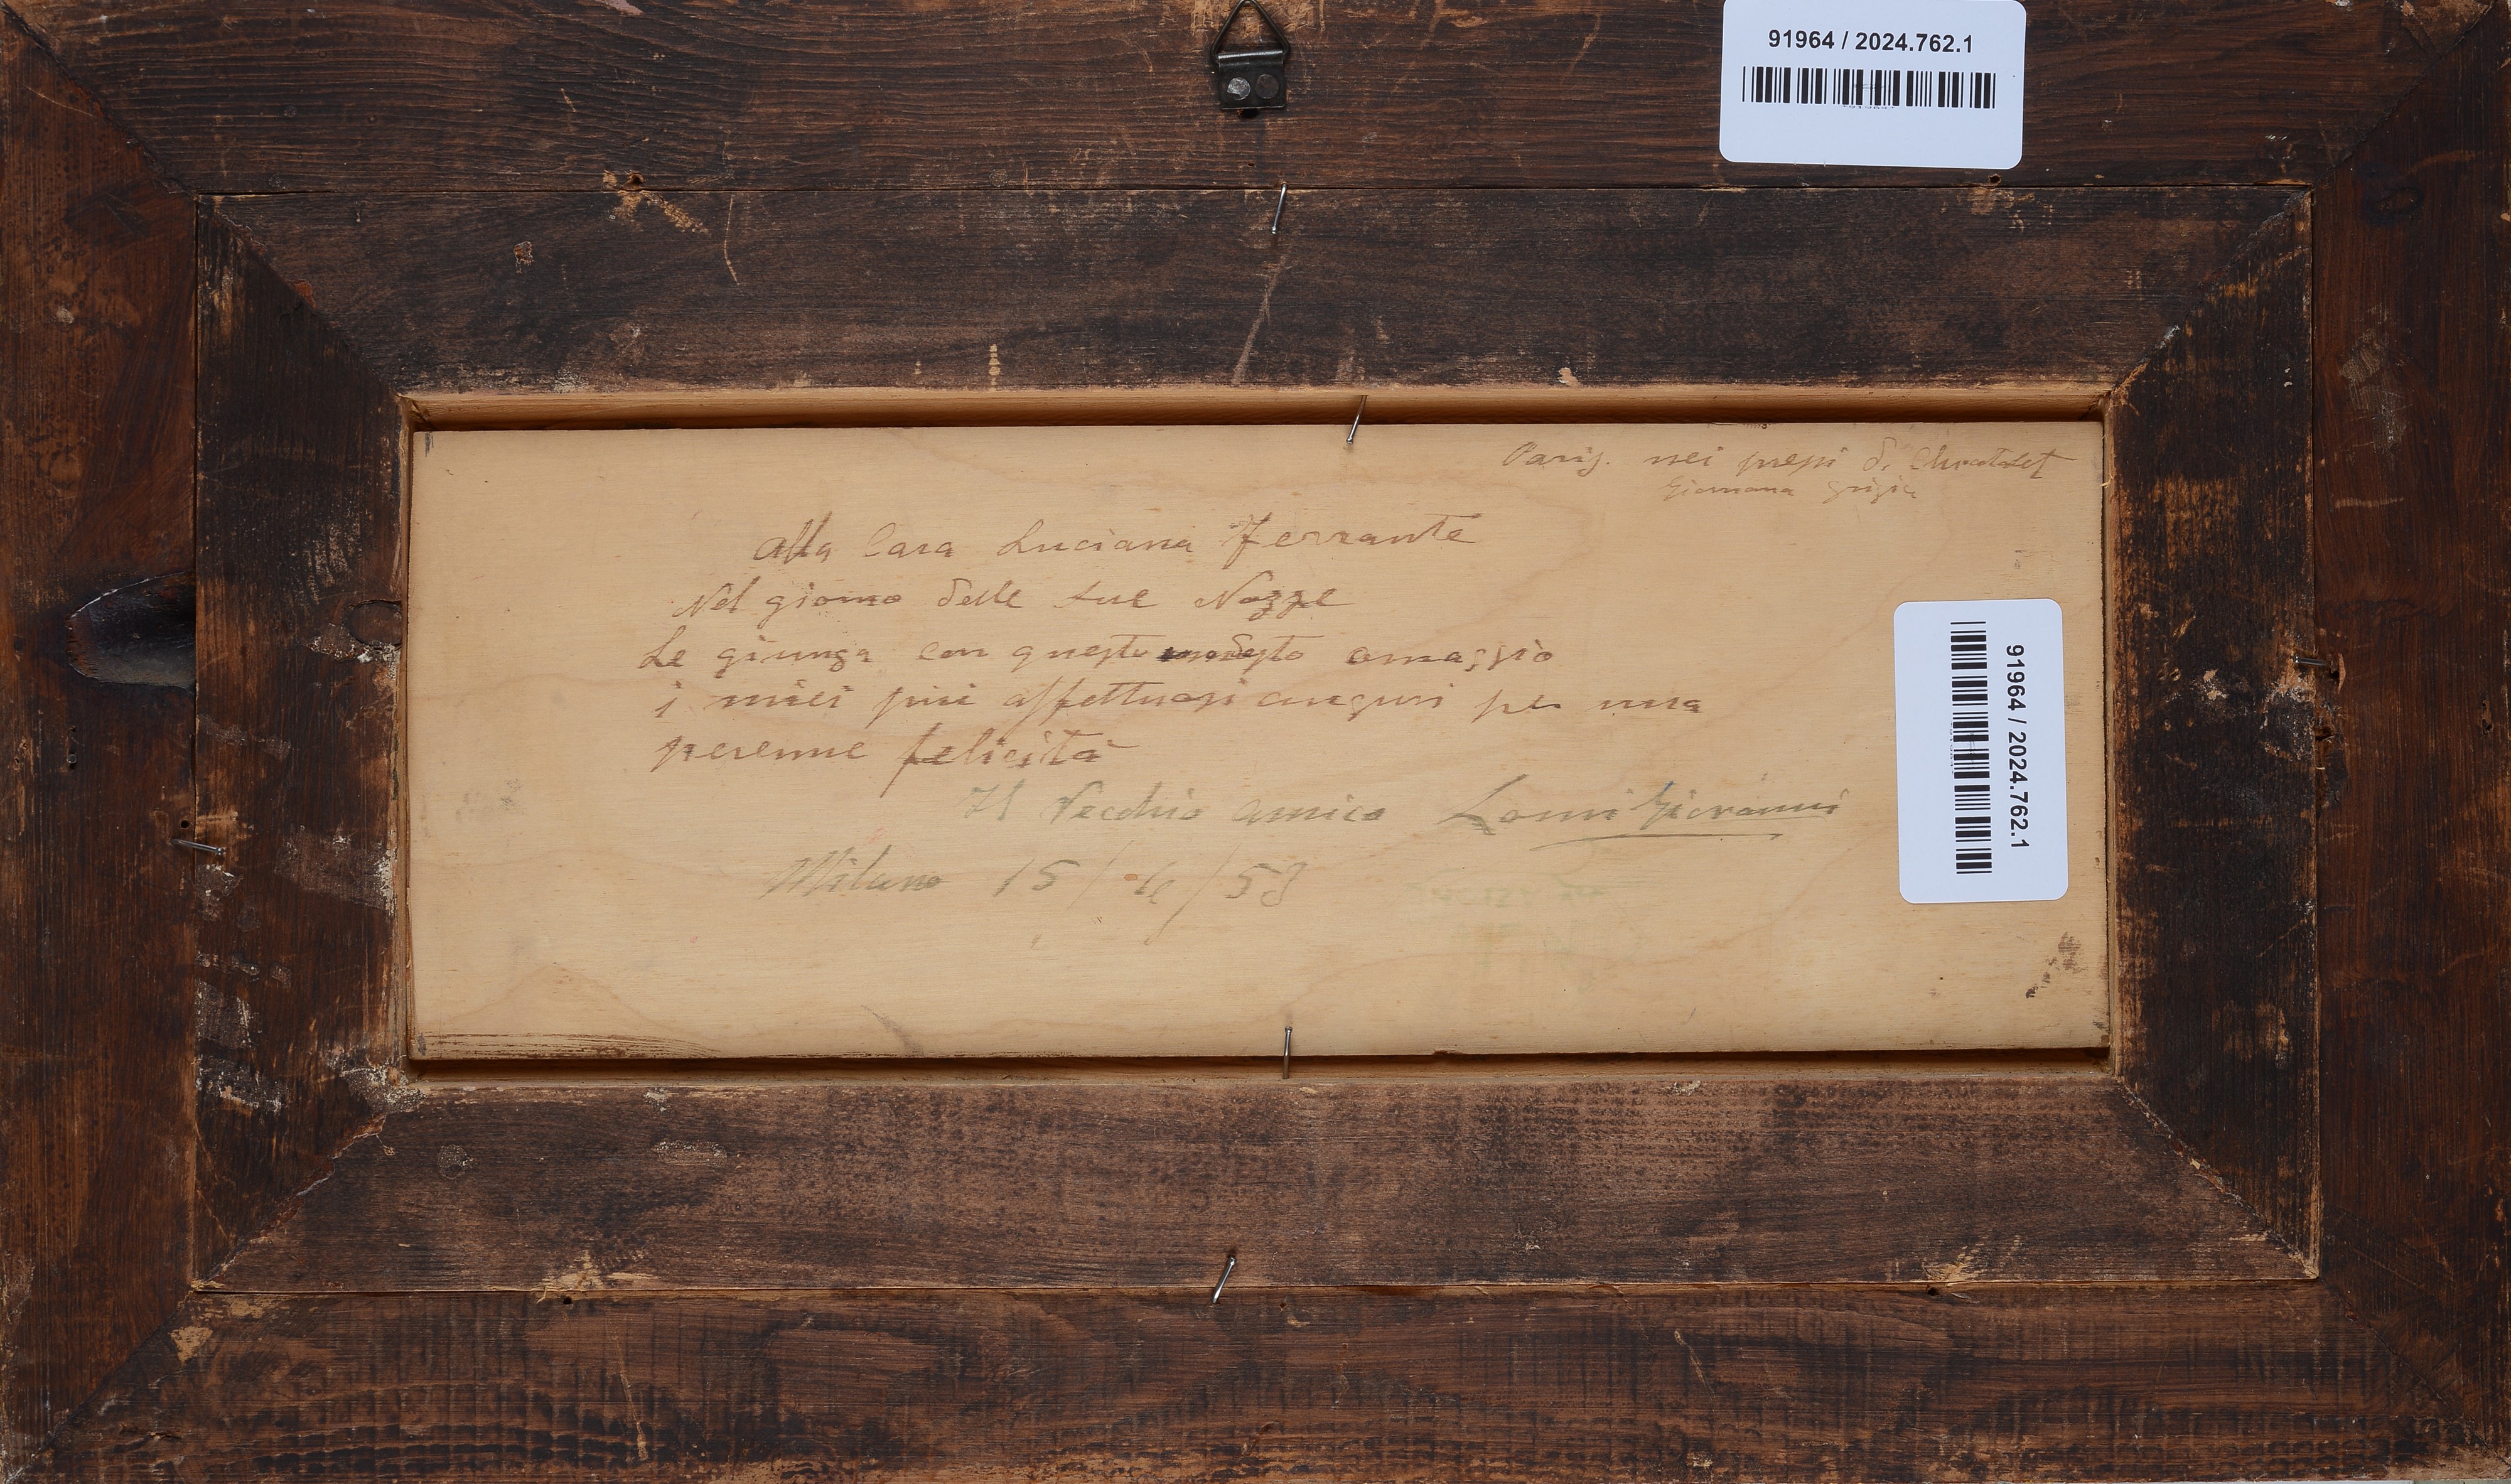 91964 / 2024.762.1
Parigi. nei pressi di Chatelet
Giornana grigia
Alla Cara Luciana Ferrante
Nel giorno delle sue Nozze
Le giunga con questo modesto omaggio
i miei più affettuosi auguri per una
perenne felicità
Il Vecchio amico Lomi Giovanni
Milano 15/4/53
91964 / 2024.762.1